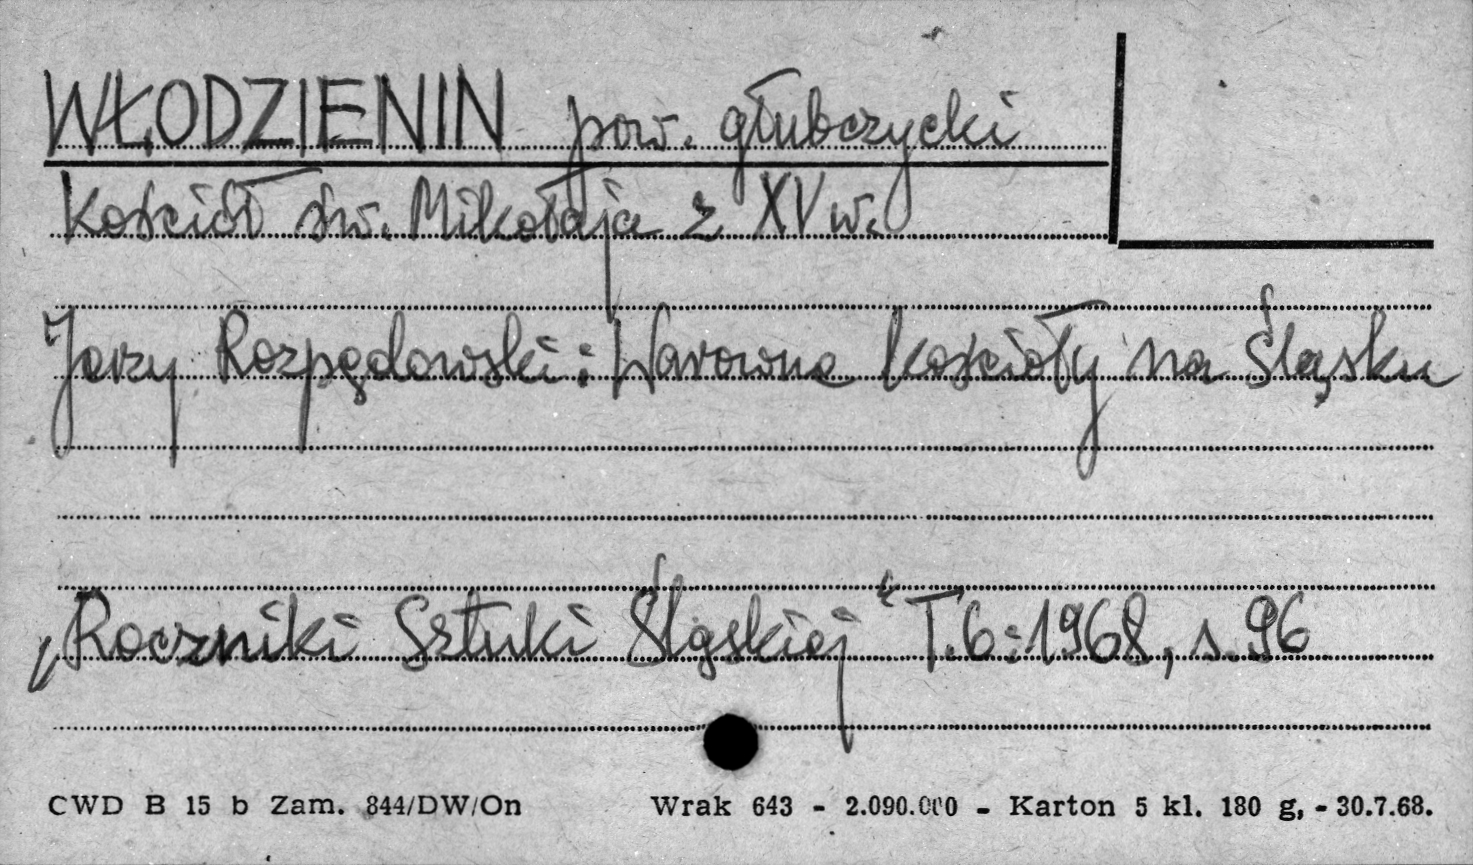 WŁODZIENIN pow. głubczycki
Kościół św. Mikołaja z XV w.
Jerzy Rozpędowski: Warowne kościoły na Śląsku
„Roczniki Sztuki Śląskiej" T.6:1968, s.96
CWD B 15 b Zam. 844/DW/On Wrak 643 - 2.090.000 - Karton 5 kl. 180 g, - 30.7.68.